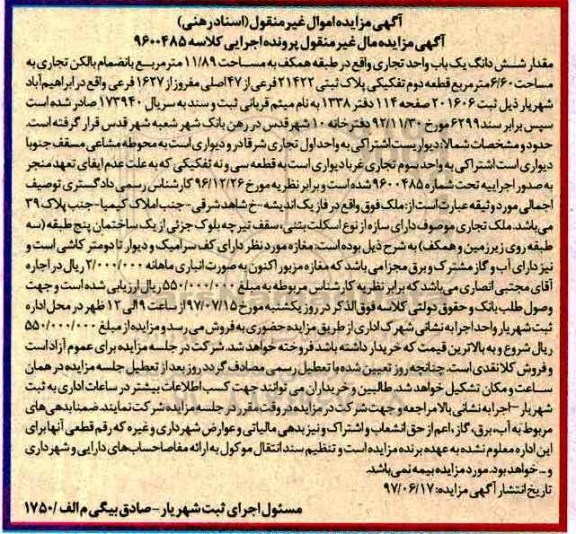 آگهی مزایده اموال غیر منقول (اسناد رهنی)
آگهی مزایده مال غیر منقول پرونده اجرایی کلاسه ۹۶۰۰۴۸۵
مقدار شش دانگ یک باب واحد تجاری واقع در طبقه همکف به مساحت ۱۱/۸۹ مترمربع بانضمام بالکن تجاری به
مساحت ۶/۶۰ مترمربع قطعه دوم تفکیکی پلاک ثبتی ۲۱۴۲۲ فرعی از ۴۷ اصلی مفروز از ۱۶۲۷ فرعی واقع در ابراهیم آباد
شهریار ذیل ثبت ۲۰۱۶۰۶ صفحه ۱۱۴ دفتر ۱۳۳۸ به نام میثم قربانی ثبت و سند به سریال ۱۷۳۹۴۰ صادر شده است
سپس برابر سند ۶۲۹۹ مورخ ۹۲/۱۱/۳۰ دفترخانه ۱۰ شهر قدس در رهن بانک شهر شعبه شهر قدس قرار گرفته است.
حدود و مشخصات شمالا: دیواریست اشتراکی به واحد اول تجاری شرقا در و دیواری است به محوطه مشاعی مسقف جنوبا
دیواری است اشتراکی به واحد سوم تجاری غربا دیواری است به قطعه سی و نه تفکیکی که به علت عدم ایفای تعهد منجر
به صدور اجراییه تحت شماره ۹۶۰۰۴۸۵ شده است و برابر نظریه مورخ ۹۶/۱۲/۲۶ کارشناس رسمی دادگستری توصیف
اجمالی مورد وثیقه عبارت است از: ملک فوق واقع در فاز یک اندیشه-خ شاهد شرقی-جنب املاک کیمیا-جنب پلاک ۳۹
می باشد. ملک تجاری موصوف دارای سازه از نوع اسکلت بتنی، سقف تیرچه بلوک جزئی از یک ساختمان پنج طبقه (سه
طبقه روی زیرزمین و همکف) به شرح ذیل بوده است: مغازه مورد نظر دارای کف سرامیک و دیوار تا دومتر کاشی است و
نیز دارای آب و گاز مشترک و برق مجزا می باشد که مغازه مزبور اکنون به صورت انباری ماهانه ۲/۰۰۰/۰۰۰ ریال در اجاره
آقای مجتبی انصاری می باشد که برابر نظریه کارشناس مربوطه به مبلغ ۵۵۰/۰۰۰/۰۰۰ ریال ارزیابی شده است و جهت
وصول طلب بانک و حقوق دولتی کلاسه فوق الذکر در روز یکشنبه مورخ ۹۷/۰۷/۱۵ از ساعت ۹ الی ۱۲ ظهر در محل اداره
ثبت شهریار واحد اجرا به نشانی شهرک اداری از طریق مزایده حضوری به فروش می رسد و مزایده از مبلغ ۵۵۰/۰۰۰/۰۰۰
ریال شروع و به بالاترین قیمت که خریدار داشته باشد فروخته خواهد شد. شرکت در جلسه مزایده برای عموم آزاد است
و فروش کلا نقدی است. چنانچه روز تعیین شده با تعطیل رسمی مصادف گردد روز بعد از تعطیل جلسه مزایده در همان
ساعت و مکان تشکیل خواهد شد. طالبین و خریداران می توانند جهت کسب اطلاعات بیشتر در ساعات اداری به ثبت
شهریار-اجرا به نشانی بالا مراجعه و جهت شرکت در مزایده در وقت مقرر در جلسه مزایده شرکت نمایند. ضمنا بدهی های
مربوط به آب، برق، گاز، اعم از حق انشعاب و اشتراک و نیز بدهی مالیاتی و عوارض شهرداری و غیره که رقم قطعی آنها برای
این اداره معلوم نشده به عهده برنده مزایده است و تنظیم سند انتقال موکول به ارائه مفاصاحساب های دارایی و شهرداری
و... خواهد بود. مورد مزایده بیمه نمی باشد.
تاریخ انتشار آگهی مزایده: ۹۷/۰۶/۱۷
مسئول اجرای ثبت شهریار-صادق بیگی م الف/۱۷۵۰